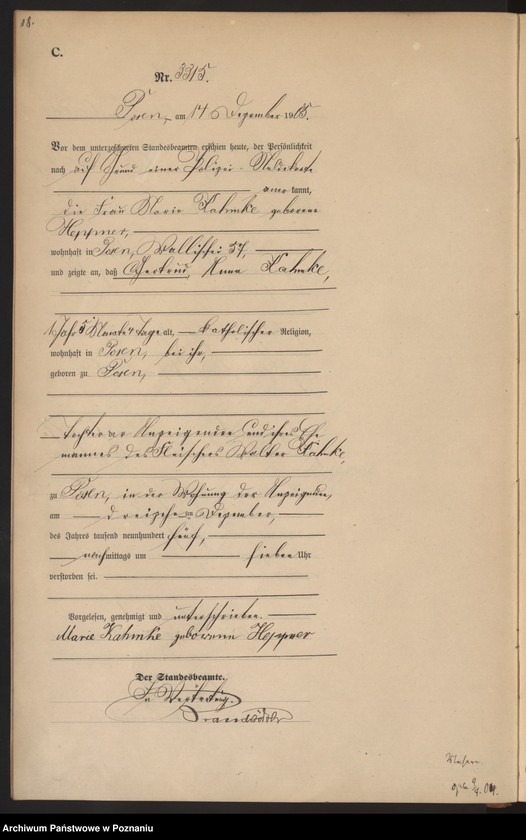 18.
C.
Nr. 3315.
Posen, am 14 Dezember 1905.
Vor dem unterzeichneten Standesbeamten erschien heute, der Persönlichkeit
nach auf Grund einer Polizei-Meldekarte
anerkannt,
die Frau Marie Kahmke geborene
Heppner,
wohnhaft in Posen, Wallischei 57,
und zeigte an, daß Gertrud, Anna Kahmke,
1 Jahr 5 Monate 4 Tage alt, katholischer Religion,
wohnhaft in Posen, bei ihr,
geboren zu Posen,
Tochter der Anzeigenden und ihres Ehe
mannes des Fleischers Walter Kahmke,
zu Posen, in der Wohnung der Anzeigenden,
am dreizehnten Dezember,
des Jahres tausend neunhundert fünf,
nachmittags um sieben Uhr
verstorben sei.
Vorgelesen, genehmigt und unterschrieben.
Marie Kahmke geborene Heppner
Der Standesbeamte.
In Vertretung.
Archiwum Państwowe w Poznaniu